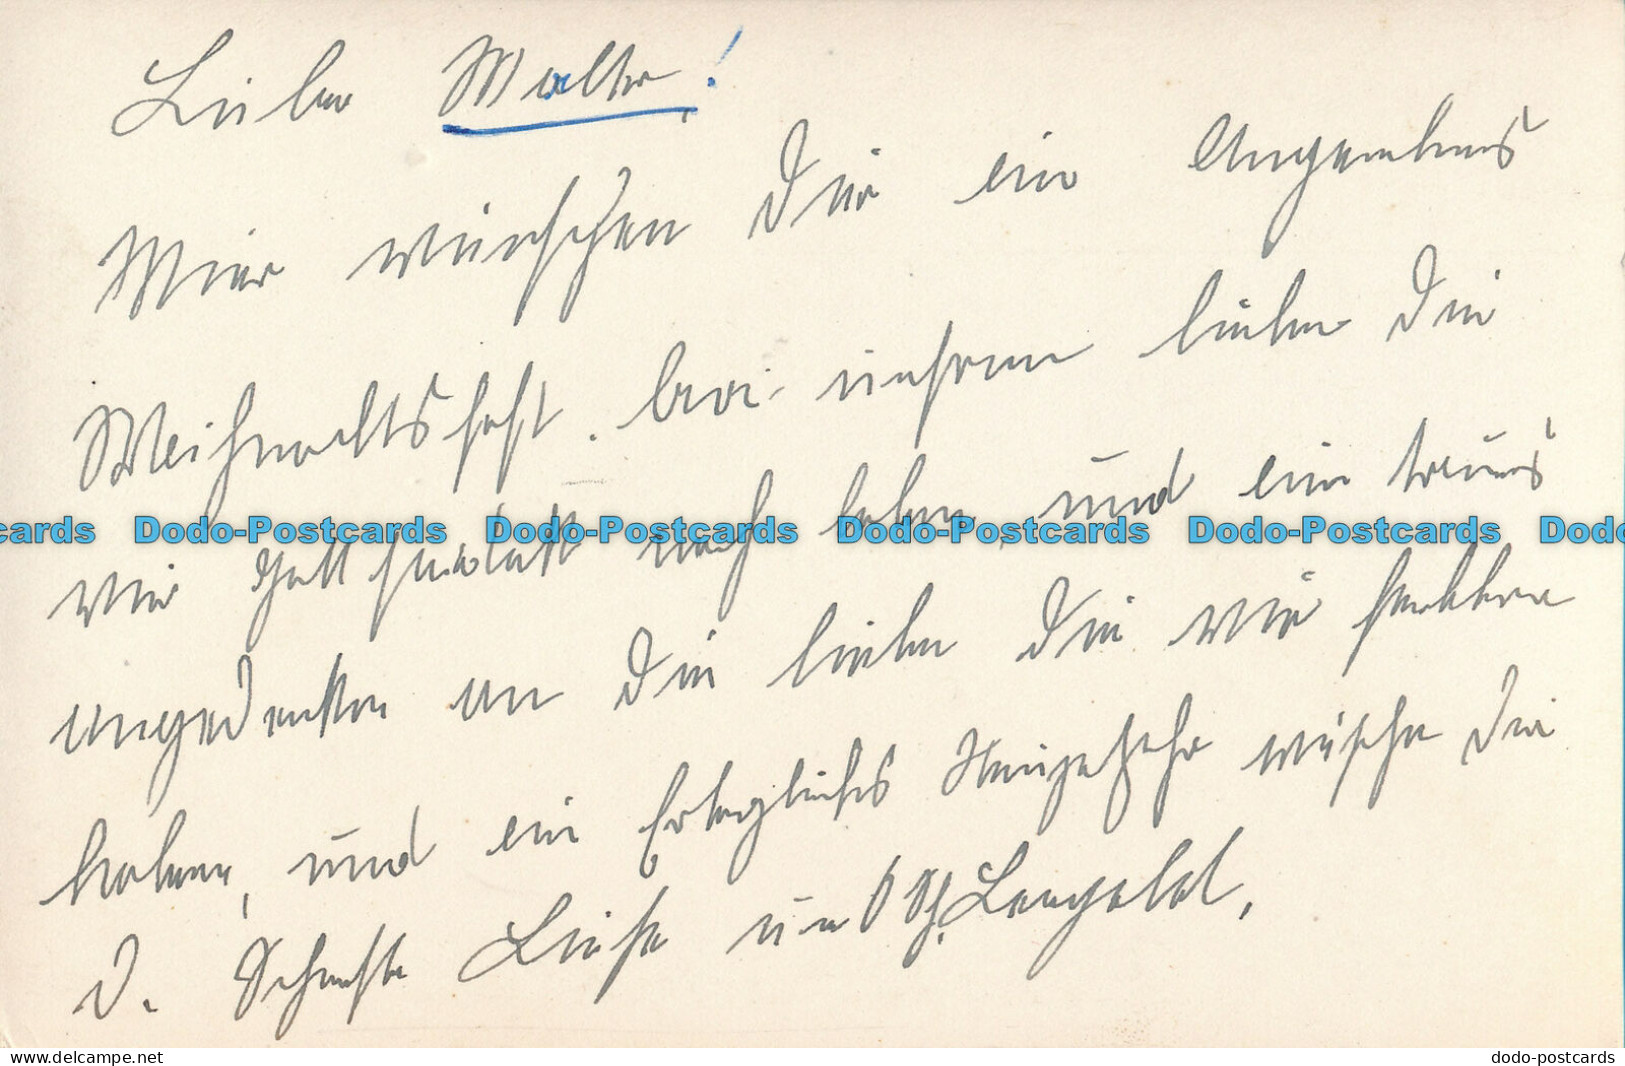 Lieber Walter!
Mier wünschen Dir ein Angenehmes
Weihnachtsfest. bei unserem lieben Die
wie noch leben, und ein treues
angedenken an Die lieben Die wir
haben, und ein Neuejahr wüsche Dir
D. Schwester Liese und Lengefeld.
Dodo-Postcards Dodo-Postcards Dodo-Postcards Dodo-Postcards
www.delcampe.net
dodo-postcards